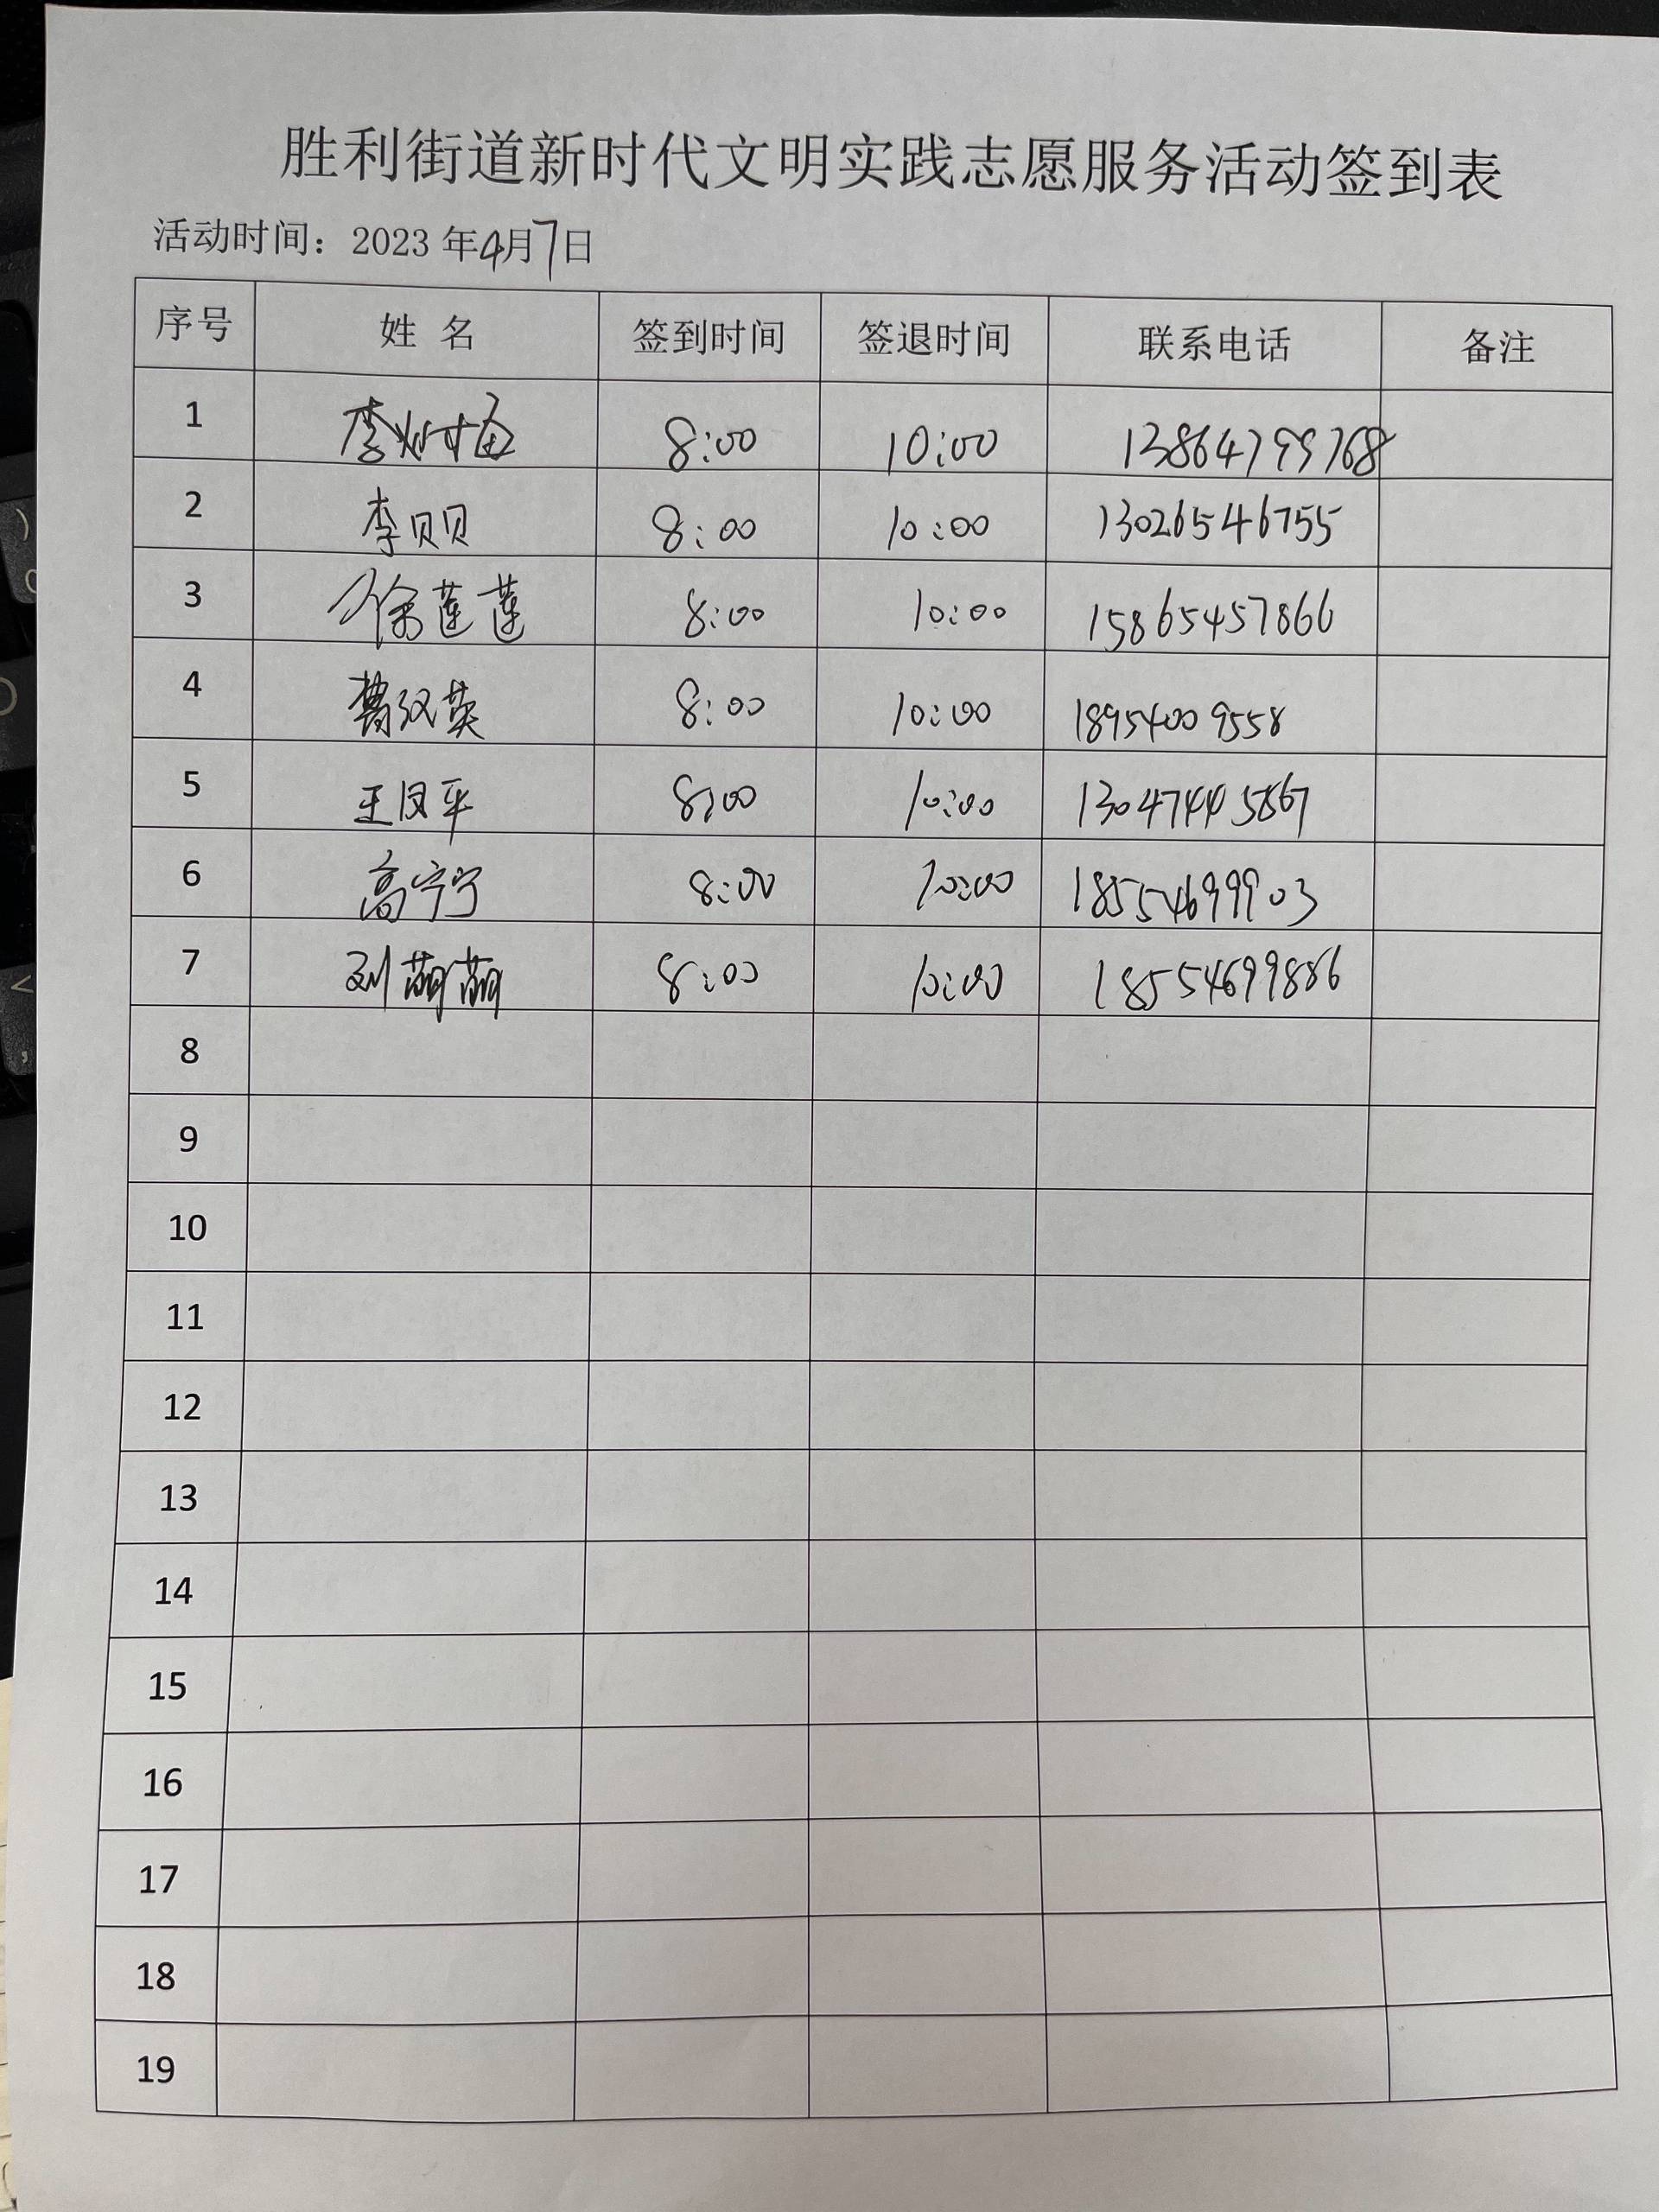 胜利街道新时代文明实践志愿服务活动签到表
活动时间：2023年4月7日
序号 姓名 签到时间 签退时间 联系电话 备注
1 李 8:00 10:00 13864799768
2 李贝贝 8:00 10:00 13026546755
3 徐莲莲 8:00 10:00 15865457866
4 曹汉英 8:00 10:00 18954009558
5 王凤平 8:00 10:00 13047445867
6 高宁宁 8:00 10:00 18554699903
7 刘萌萌 8:00 10:00 18554699886
8
9
10
11
12
13
14
15
16
17
18
19